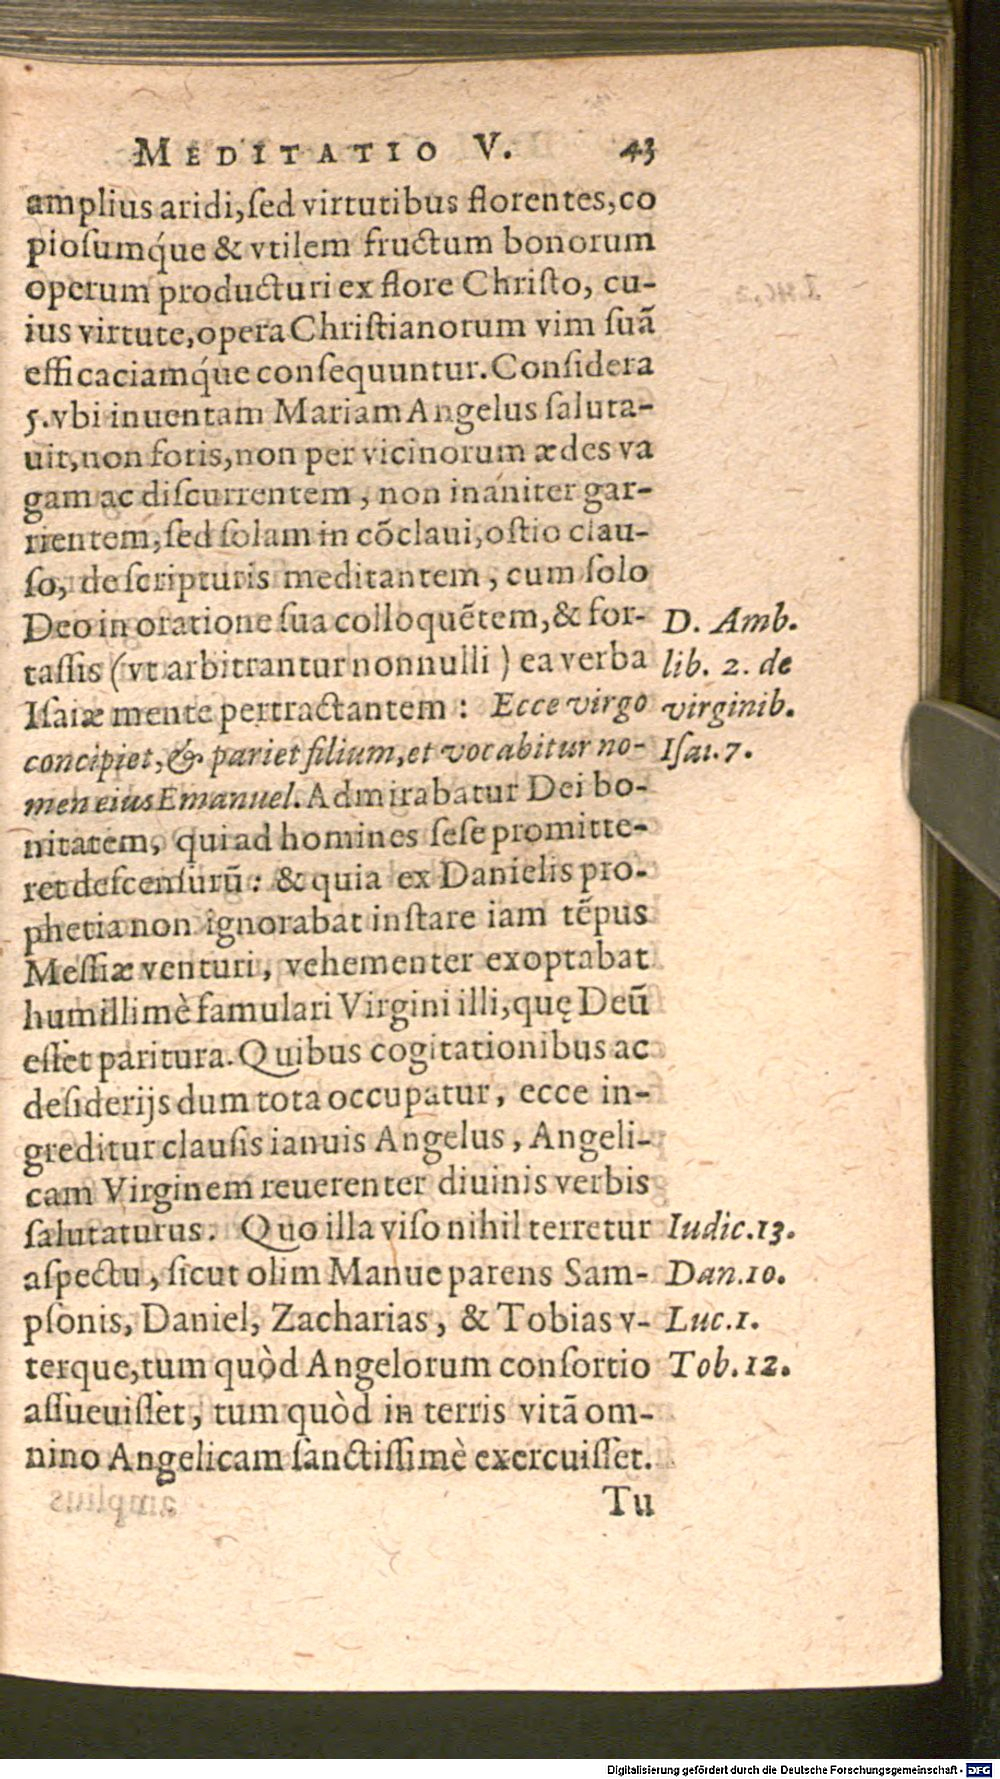 MEDITATIO V. 43
amplius aridi, ſed virtutibus florentes, co
pioſumq́ue & vtilem fructum bonorum
operum producturi ex flore Chriſto, cu-
ius virtute, opera Chriſtianorum vim ſuã
efficaciamq́ue conſequuntur. Conſidera
5. vbi inuentam Mariam Angelus ſaluta-
uit, non foris, non per vicinorum ædes va
gam ac diſcurrentem, non inaniter gar-
rientem, ſed ſolam in cõclaui, oſtio clau-
ſo, de ſcripturis meditantem, cum ſolo
Deo in oratione ſua colloquẽtem, & for- D. Amb.
taſſis (vt arbitrantur nonnulli) ea verba lib. 2. de
Iſaiæ mente pertractantem: Ecce virgo virginib.
concipiet, & pariet filium, et vocabitur no- Iſai. 7.
men eius Emanuel. Admirabatur Dei bo-
nitatem, qui ad homines ſeſe promitte-
ret deſcenſurũ: & quia ex Danielis pro-
phetia non ignorabat inſtare iam tẽpus
Meſſiæ venturi, vehementer exoptabat
humillimè famulari Virgini illi, quę Deũ
eſſet paritura. Quibus cogitationibus ac
deſiderijs dum tota occupatur, ecce in-
greditur clauſis ianuis Angelus, Angeli-
cam Virginem reuerenter diuinis verbis
ſalutaturus. Quo illa viſo nihil terretur Iudic. 13.
aſpectu, ſicut olim Manue parens Sam- Dan. 10.
pſonis, Daniel, Zacharias, & Tobias v- Luc. 1.
terque, tum quòd Angelorum conſortio Tob. 12.
aſſueuiſſet, tum quòd in terris vitã om-
nino Angelicam ſanctiſſimè exercuiſſet.
Tu
Digitalisierung gefördert durch die Deutsche Forschungsgemeinschaft - DFG